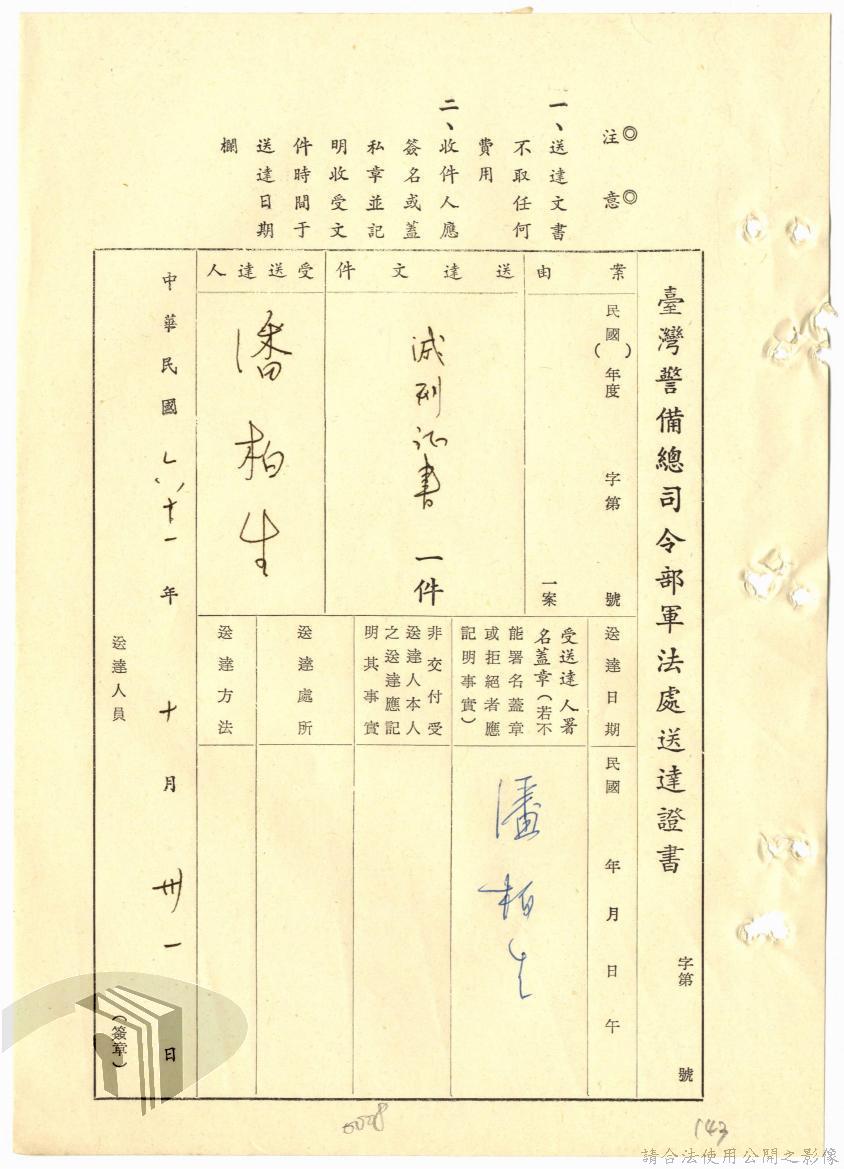 ◎注意◎
一、送達文書
不取任何
費用
二、收件人應
簽名或蓋
私章並記
明收受文
件時間于
送達日期
欄
臺灣警備總司令部軍法處送達證書
字第 號
案由
民國( )年度 字第 號
一案
送達文件
減刑证書 一件
受送達人
潘柏生
送達日期
民國 年 月 日 午
受送達人署
名蓋章(若不
能署名蓋章
或拒絕者應
記明事實)
潘柏生
非交付受
送達人本人
之送達應記
明其事實
送達處所
送達方法
中華民國 六十一年 十月 卅一日
送達人員 (簽章)
143
請合法使用公開之影像